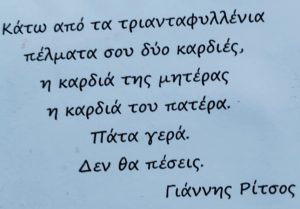 Κάτω από τα τριανταφυλλένια
πέλματα σου δύο καρδιές,
η καρδιά της μητέρας
η καρδιά του πατέρα.
Πάτα γερά.
Δεν θα πέσεις.
Γιάννης Ρίτσος